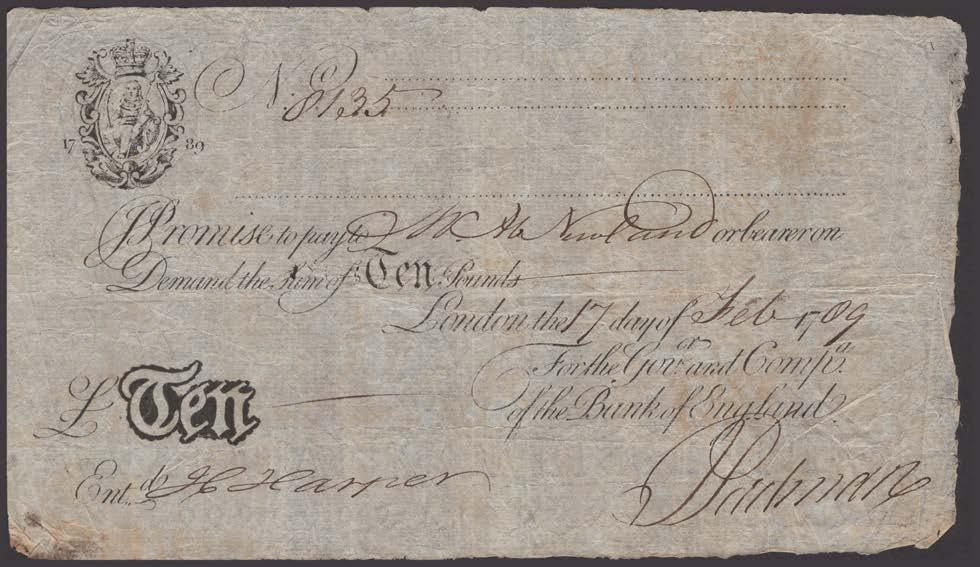 No.
8135
17 89
I Promise to pay to Mr. Ab Newland or bearer on
Demand the Sum of Ten Pounds
London the 17 day of Feb 1789
For the Govr. and Compa.
of the Bank of England
£ Ten
Entd. H Harper